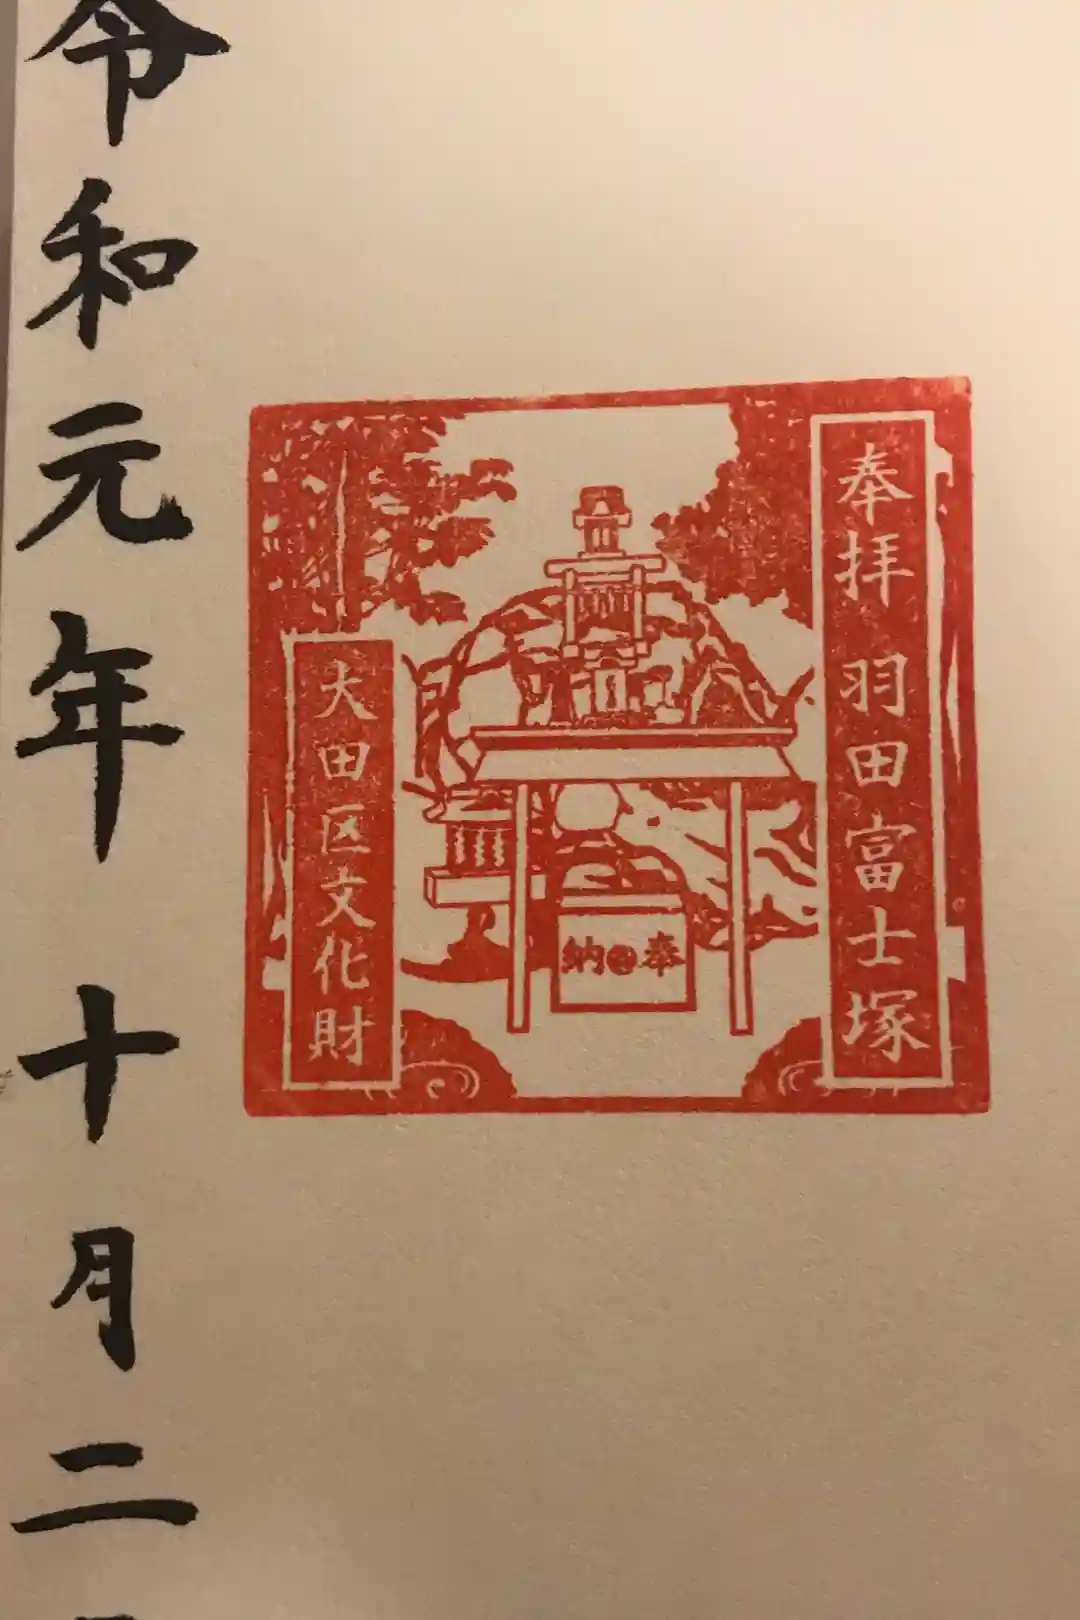 奉拝 羽田富士塚
奉納
大田区文化財
令和元年 十月二